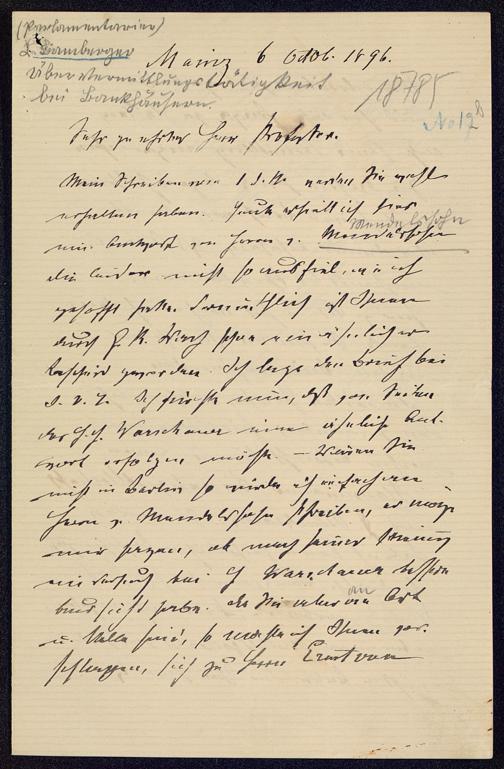 (Parlamentarier)
L. Bamberger
Über Vermittlungstätigkeit
bei Bankhäusern.
Mainz 6 Oktob. 1896.
18785
No 128
Sehr geehrter Herr Professor.
Mein Schreiben vom 1 d. M. werden Sie wohl
erhalten haben. Heute erhielt ich hier
Mendelssohn
eine Antwort von Herrn v. Mendelssohn
die leider nicht so ausfiel, wie ich
gehofft hatte. Vermuthlich ist Ihnen
durch schon ein ähnlicher
Bescheid geworden. Ich lege den Brief bei
Ich fürchte nun, daß von Seiten
des H. Warschauer eine ähnliche Ant-
wort erfolgen möchte. – Wären Sie
nicht in Berlin so würde ich einfach an
Herrn v. Mendelssohn schreiben, er möge
mir sagen, ob nach seiner Meinung
ein Versuch bei H Warschauer bessere
Aussicht habe. Da Sie aber an Ort
u. Stelle sind, so möchte ich Ihnen vor-
schlagen, sich zu Herrn Ernst von